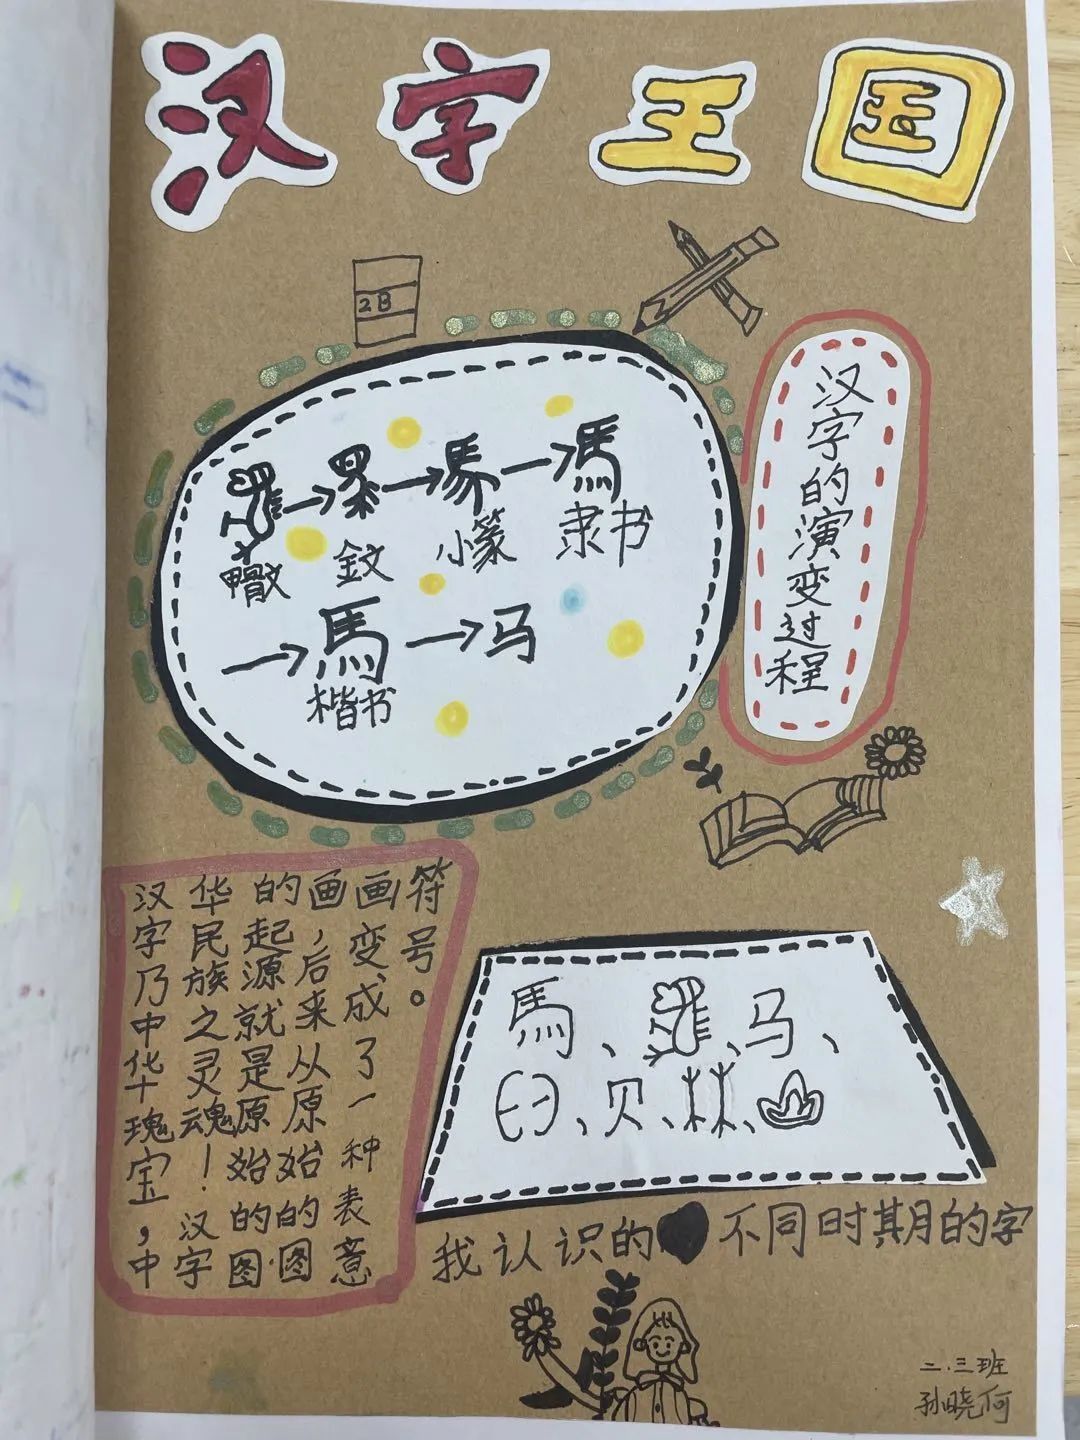 汉字王国
2B
汉字的演变过程
→ → 馬 → 馬
金文 小篆 隶书
→ 馬 → 马
楷书
汉字乃中华瑰宝，中
华民族之灵魂！汉字
的起源就是原始的图
画，后来从原始的图
画变成了一种表意
符号。
馬、、马、
、贝、林、
我认识的不同时期的字
二.三班
孙晓何